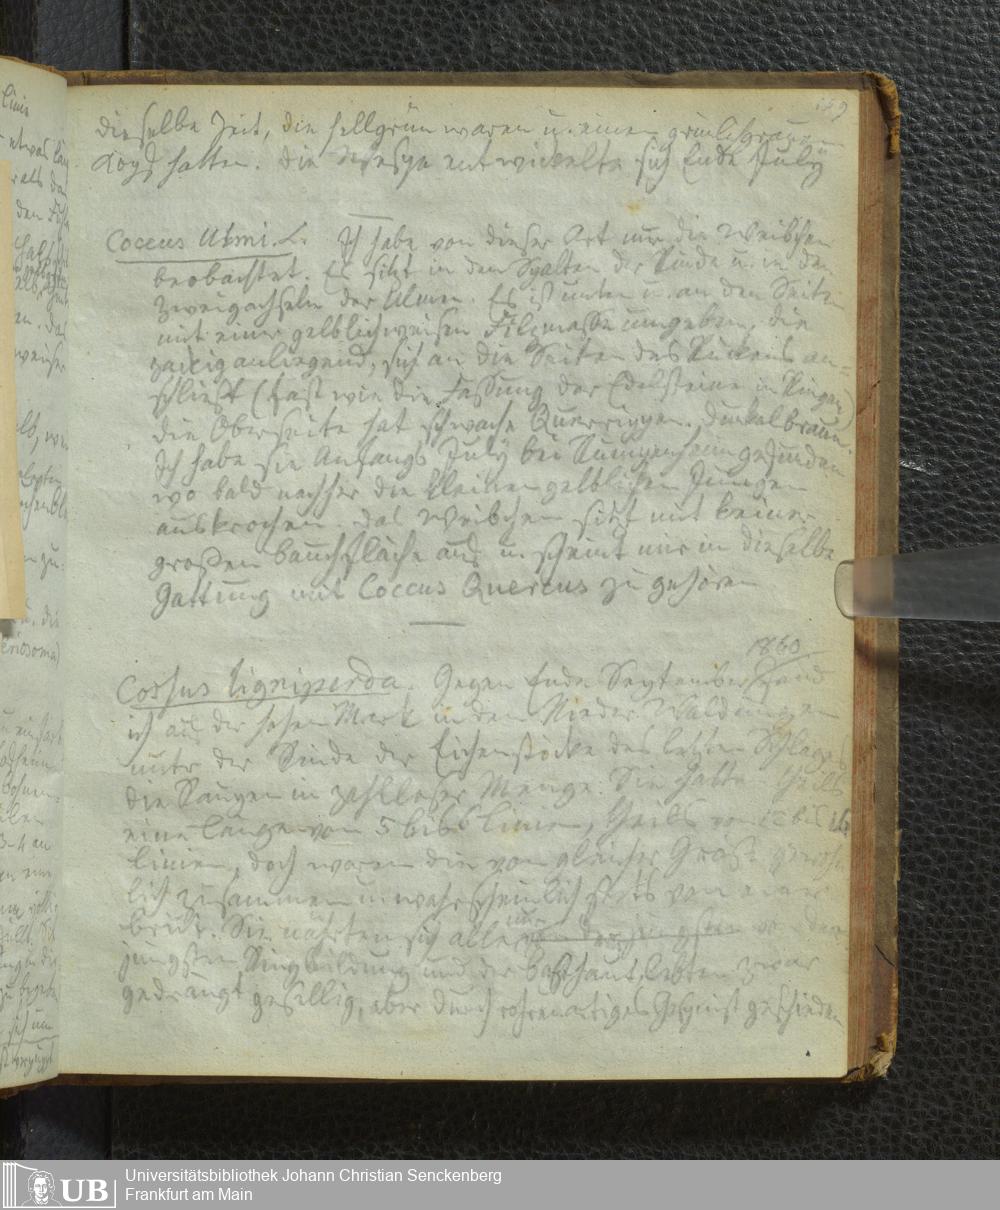 159
dieselbe Zeit, die hellgrün waren u. einen
Kopf hatten. Die Wespe entwickelte sich Ende July
Coccus Ulmi. L. Ich habe von dieser Art nur die Weibchen
beobachtet. Es sitzt in den Spalten der Rinde u. in den
Zweigachseln der Ulmen. Es ist unten u. an den Seiten
mit einer gelblichweisen Filzmasse umgeben, die
zackig anliegend, sich an die Seiten des Rückens an=
schließt (fast wie die Fassung der Edelsteine in Ringen)
die Oberseite hat schwache Querrippen. dunkelbraun.
Ich habe sie Anfangs July bei gefunden
wo bald nachher die kleinen gelblichen Jungen
auskrochen. Das Weibchen sitzt mit keiner
großen Bauchfläche auf u. scheint mir in dieselbe
Gattung mit Coccus Quercus zu gehören
1860
Cossus ligniperda. Gegen Ende September fand
ich auf der hohen Mark in den Nieder Waldungen
unter der Rinde der Eichenstöcke des letzten Schlages
die Raupen in zahlloser Menge. Sie hatten theils
eine Länge von 5 bis 6 Linien, theils von 12 bis 16
Linien, doch waren die von gleicher Größe
lich zusammen u. wahrscheinlich stets von einer
Brut. Sie nährten sich alle nur von der
jüngsten und der Basthaut, lebten zwar
gedrängt gesellig, aber durch röhrenartiges Gespinst geschieden
Universitätsbibliothek Johann Christian Senckenberg
Frankfurt am Main
UB